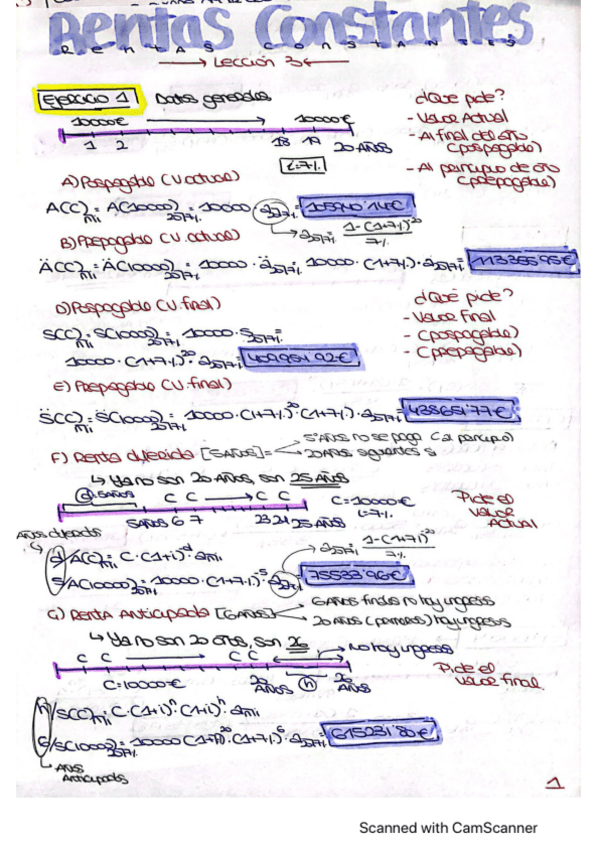 Rentas Constantes
RENTAS CONSTANTES
→ Lección 3 ←
Ejercicio 1 Datos generales
10000€ → 10000€
1 2 18 19 20 AÑOS
i=7%
¿Que pide?
- Valor Actual
- Al final del año
(pospagable)
- Al principio de año
(prepagable)
A) Pospagable (V. actual)
A(C)n¬i = A(10000)20¬7% = 10000 · a20¬7% = 105940'14€
→ a20¬7% = 1-(1+7%)^-20 / 7%
B) Prepagable (V. actual)
Ä(C)n¬i = Ä(10000)20¬7% = 10000 · ä20¬7% = 10000 · (1+7%) · a20¬7% = 113355'95€
D) Pospagable (V. final)
¿Que pide?
- Valor Final
- (pospagable)
- (prepagable)
S(C)n¬i = S(10000)20¬7% = 10000 · S20¬7% =
10000 · (1+7%)^20 · a20¬7% = 409954'92€
E) Prepagable (V. final)
S̈(C)n¬i = S̈(10000)20¬7% = 10000 · (1+7%)^20 · (1+7%) · a20¬7% = 438651'77€
F) Renta diferida [5 AÑOS] =
5 AÑOS no se paga (al principio)
20 AÑOS siguientes si
↳ Ya no son 20 AÑOS, son 25 AÑOS
d. 5 AÑOS C C → C C
5 AÑOS 6 7 23 24 25 AÑOS
C = 10000€
i = 7%
Pide el
Valor
Actual
Años diferidos
a20¬7% = 1-(1+7%)^-20 / 7%
d/A(C)n¬i = C · (1+i)^-d · an¬i
5/A(10000)20¬7% = 10000 · (1+7%)^-5 · a20¬7% = 75533'96€
G) Renta Anticipada [6 AÑOS]
6 AÑOS finales no hay ingresos
20 AÑOS (primeros) hay ingresos
↳ Ya no son 20 años, son 26
No hay ingresos
C C → C C
C = 10000€ 20 AÑOS h 26 AÑOS
Pide el
Valor final
h/S(C)n¬i = C · (1+i)^n · (1+i)^h · an¬i
6/S(10000)20¬7% = 10000 (1+7%)^20 · (1+7%)^6 · a20¬7% = 615231'80€
↳ Años
Anticipados
1
Scanned with CamScanner